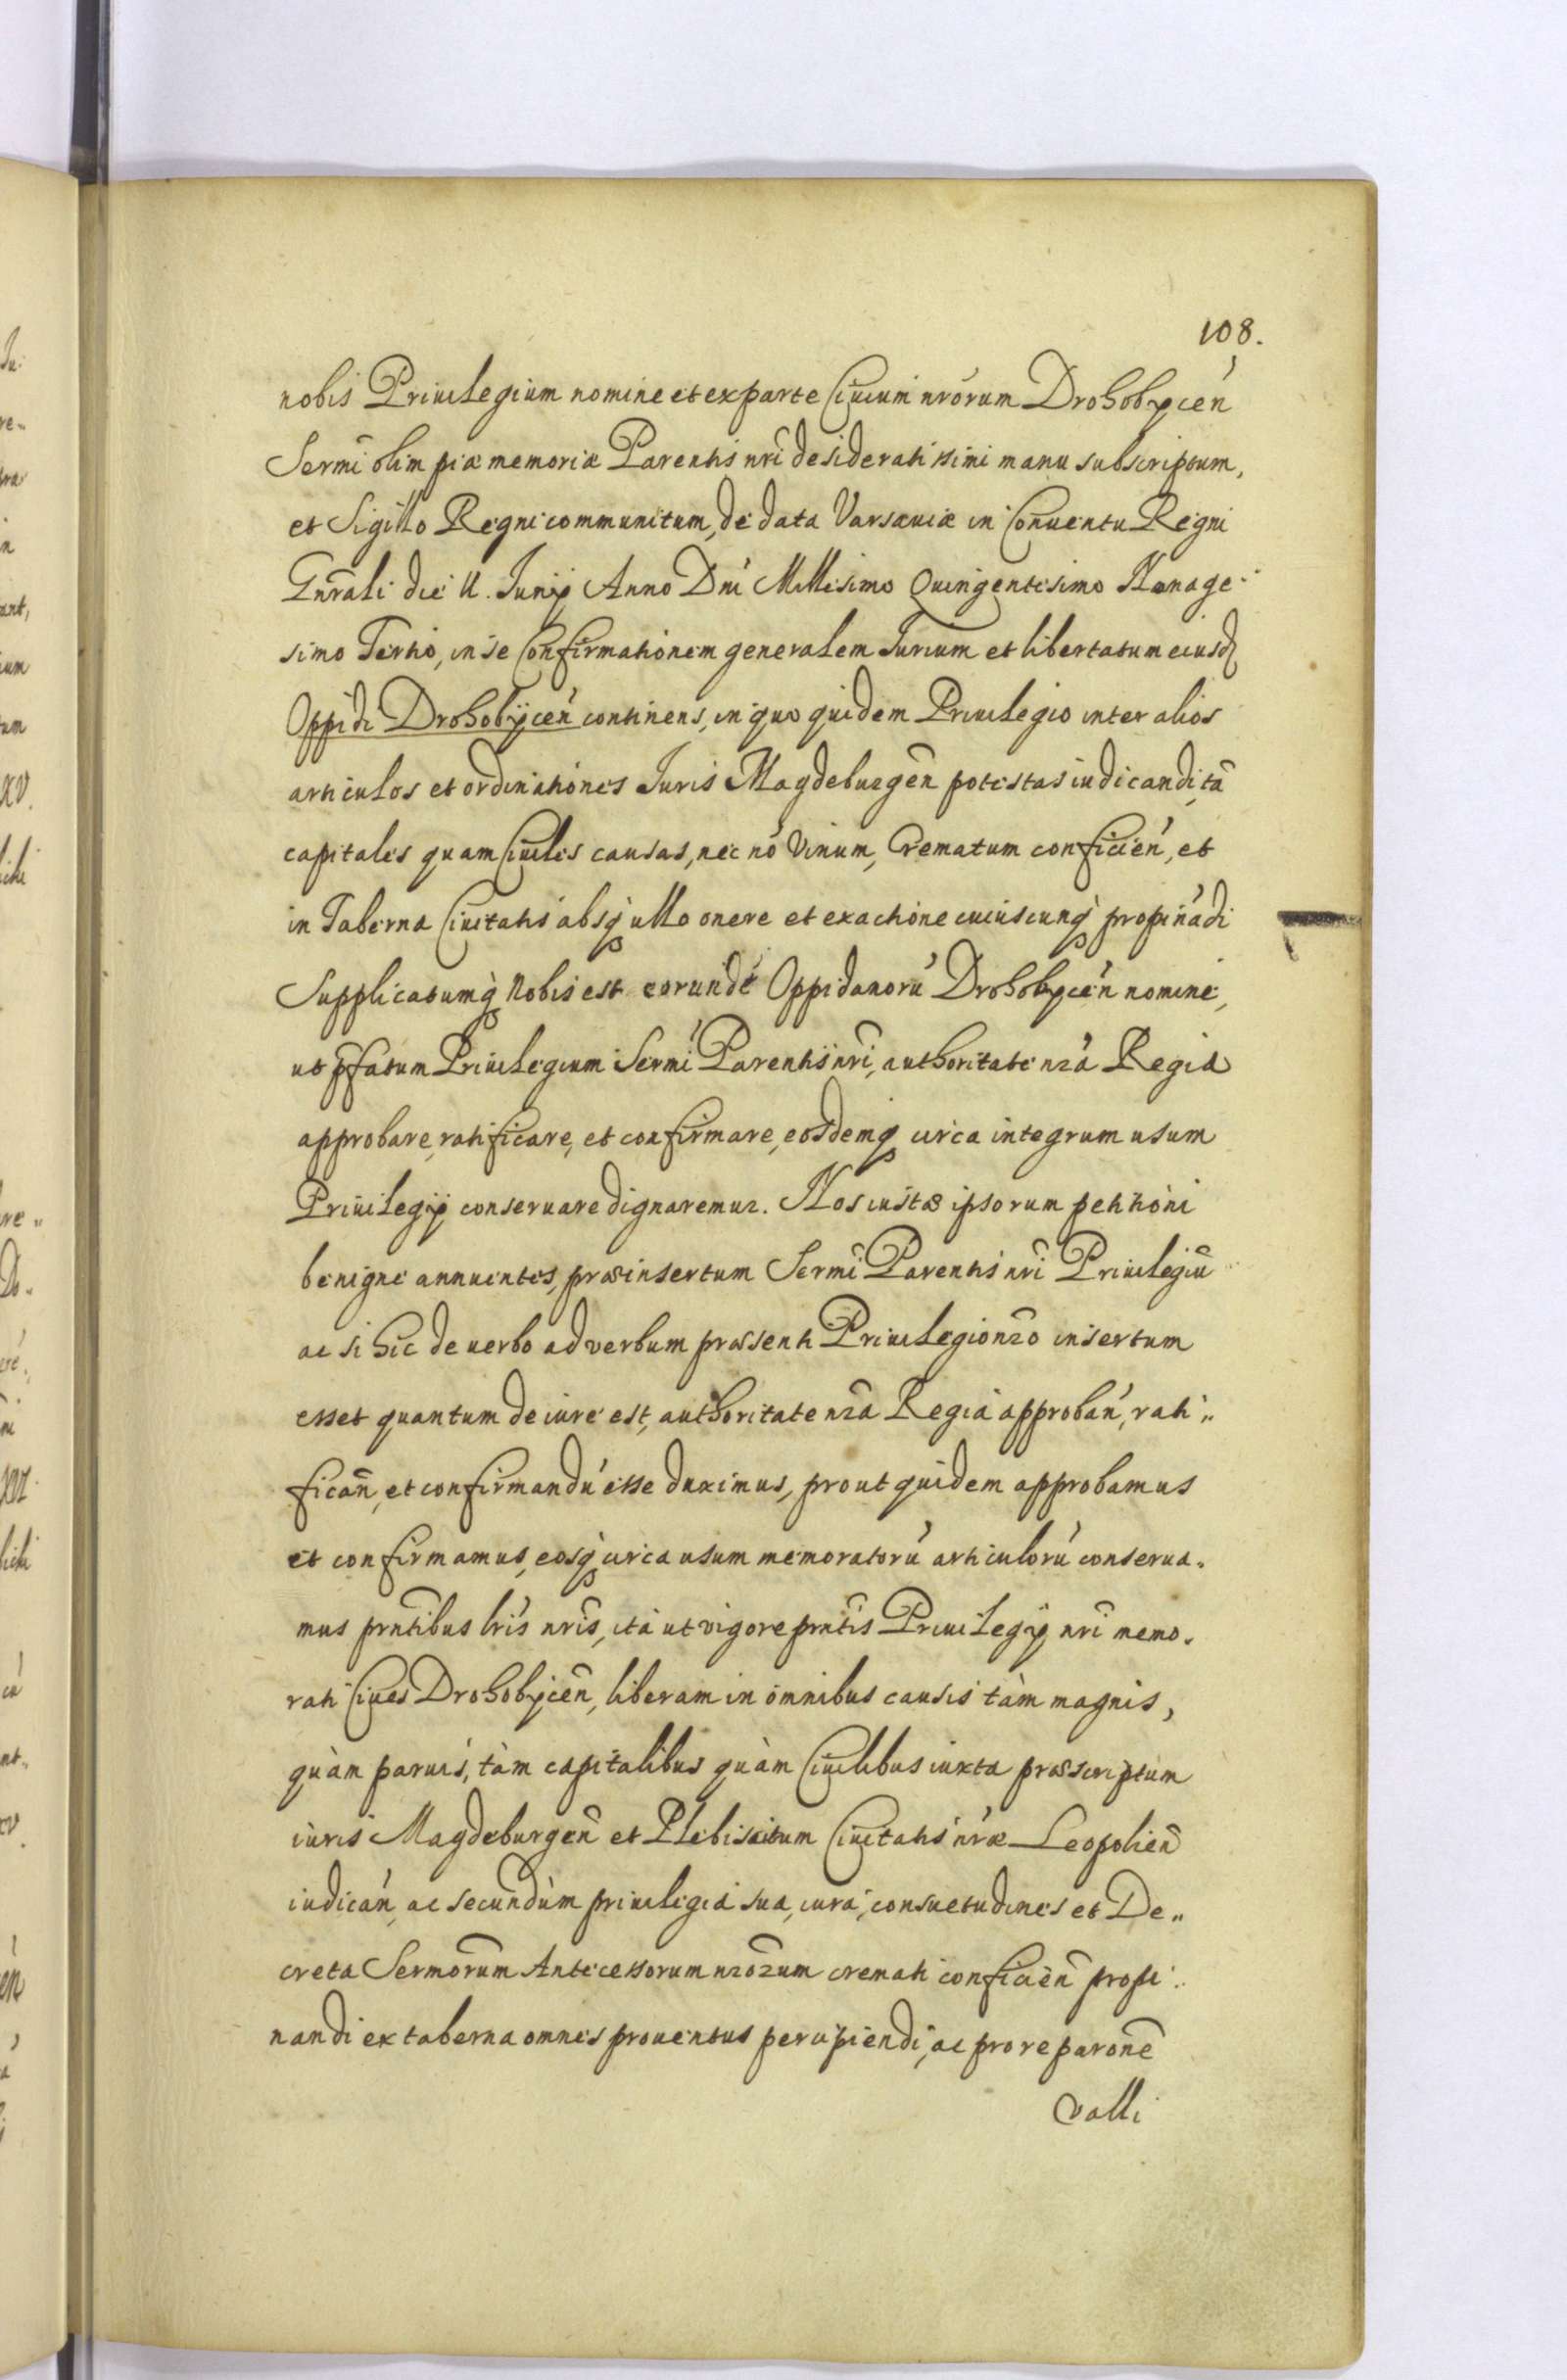 108.
nobis Priuilegium nomine et ex parte Ciuium nrōrum Drohobycen̄
Sermī olim piæ memoriæ Parentis nrī desideratissimi manu subscriptum,
et Sigillo Regni communitum, de data Varsauiæ in Conuentu Regni
Gnrāli die 11. Junij Anno Dnī Millesimo Quingentesimo Nonage-
simo Tertio, in se Confirmationem generalem Jurium et libertatum eiusd
Oppidi Drohobÿcen̄ continens, in quo quidem Priuilegio inter alios
articulos et ordinationes Juris Magdeburgen̄ potestas iudicandi, tā
capitales quam Ciuiles causas, nec nō Vinum, Crematum conficien̄, et
in Taberna Ciuitatis absq̀ ullo onere et exactione cuiuscunq̀ propinādi
Supplicatumq̀ Nobis est eorundē Oppidanorū Drohobycen̄ nomine,
ut p̄fatum Priuilegium Sermī Parentis nrī, authoritate nrā Regia
approbare, ratificare, et confirmare, eosdemq̀ circa integrum usum
Priuilegij conseruare dignaremur. Nos iustæ ipsorum petitioni
benigne annuentes, præinsertum Sermī Parentis nrī Priuilegiū
ac si hic de uerbo ad verbum præsenti Priuilegio nrō insertum
esset quantum de iure est, authoritate nrā Regia approban̄, rati„
fican̄, et confirmandū esse duximus, prout quidem approbamus
et confirmamus, eosq̀ circa usum memoratorū articulorū conserua-
mus prntībus lrīs nrīs, ita ut vigore prntīs Priuilegij nrī memo-
rati Ciues Drohobÿcen̄, liberam in omnibus causis tàm magnis,
quàm paruis, tàm capitalibus quàm Ciuilibus iuxta præscriptum
iuris Magdeburgen̄ et Plebiscitum Ciuitatis nrǣ Leopolien̄
iudican̄, ac secundùm priuilegia sua, iura, consuetudines et De„
creta Sermōrum Antecessorum nrōrum cremati conficien̄ propi„
nandi ex taberna omnes prouentus percipiendi, ac pro reparonē
valli